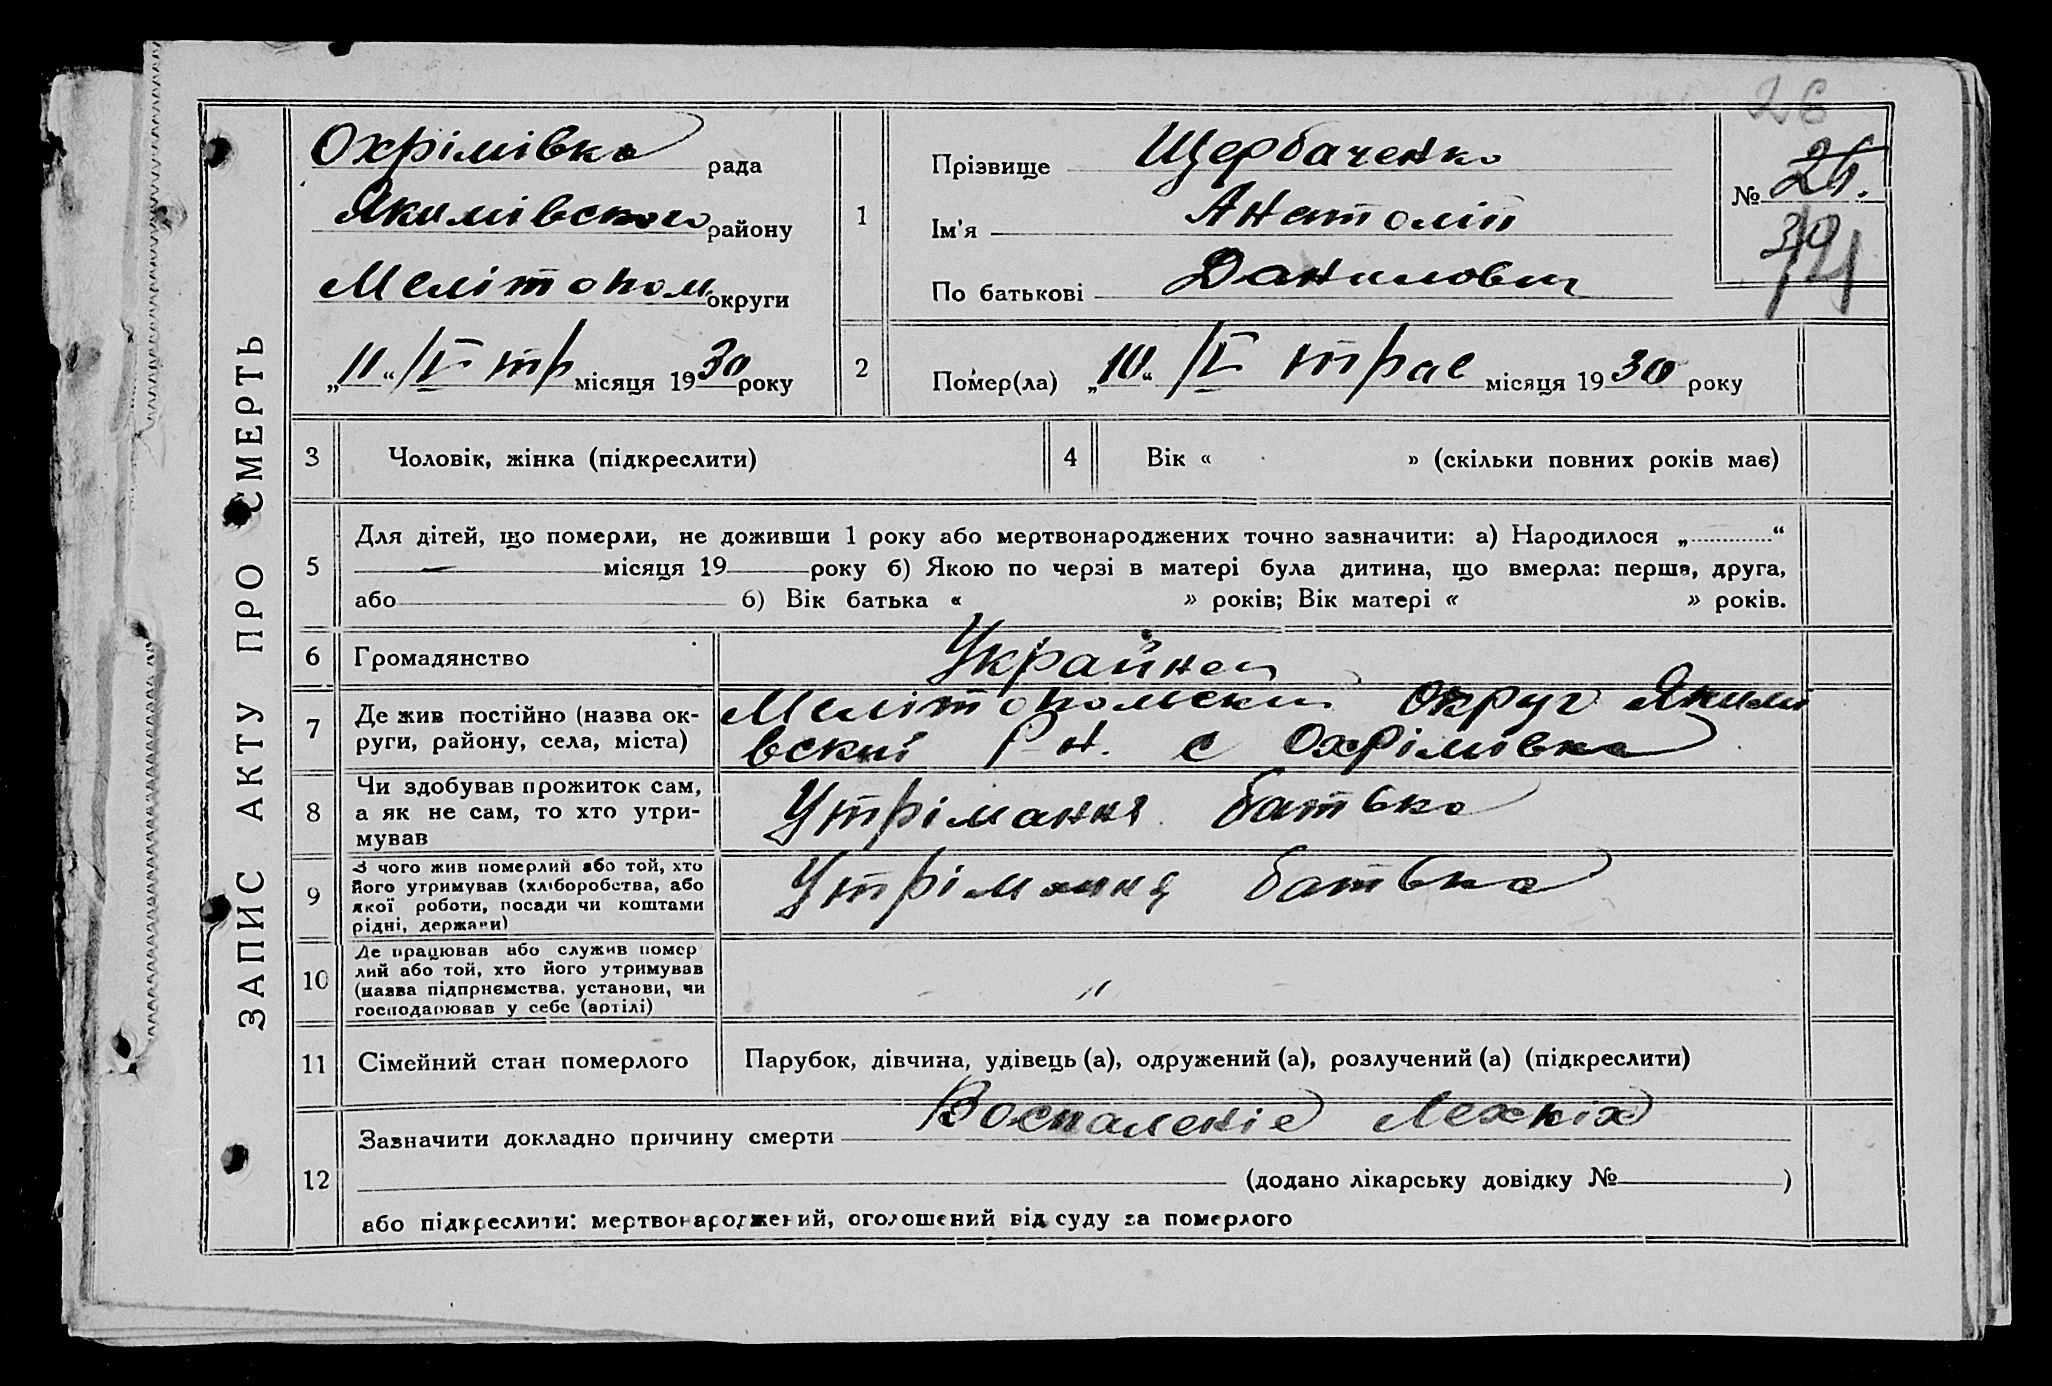 26
ЗАПИС АКТУ ПРО СМЕРТЬ
Охрімівка рада
Якимівського району
Мелітопол округи
„11“ /V тр місяця 1930 року
1
Прізвище Щербаченко
Ім'я Анатолій
По батькові Данилович
№ 26.
30
74
2
Помер(ла) „10“ /V трав місяця 1930 року
3 Чоловік, жінка (підкреслити)
4 Вік « » (скільки повних років має)
5
Для дітей, що померли, не доживши 1 року або мертвонароджених точно зазначити: а) Народилося „ “
— місяця 19 року б) Якою по черзі в матері була дитина, що вмерла: перша, друга,
або 6) Вік батька « » років; Вік матері « » років.
6 Громадянство Украйнец
7
Де жив постійно (назва ок-
руги, району, села, міста)
Мелітопольски округ Якими
вский Р-н. с Охрімівка
8
Чи здобував прожиток сам,
а як не сам, то хто утри-
мував
Утрімання батька
9
З чого жив померлий або той, хто
його утримував (хліборобства, або
якої роботи, посади чи коштами
рідні, держави)
Утрімання батька
10
Де працював або служив помер
лий або той, хто його утримував
(назва підприємства, установи, чи
господарював у себе (артілі)
"
11 Сімейний стан померлого Парубок, дівчина, удівець (а), одружений (а), розлучений (а) (підкреслити)
12
Зазначити докладно причину смерти Воспаленіе Лехкіх
(додано лікарську довідку № )
або підкреслити: мертвонароджений, оголошений від суду за померлого